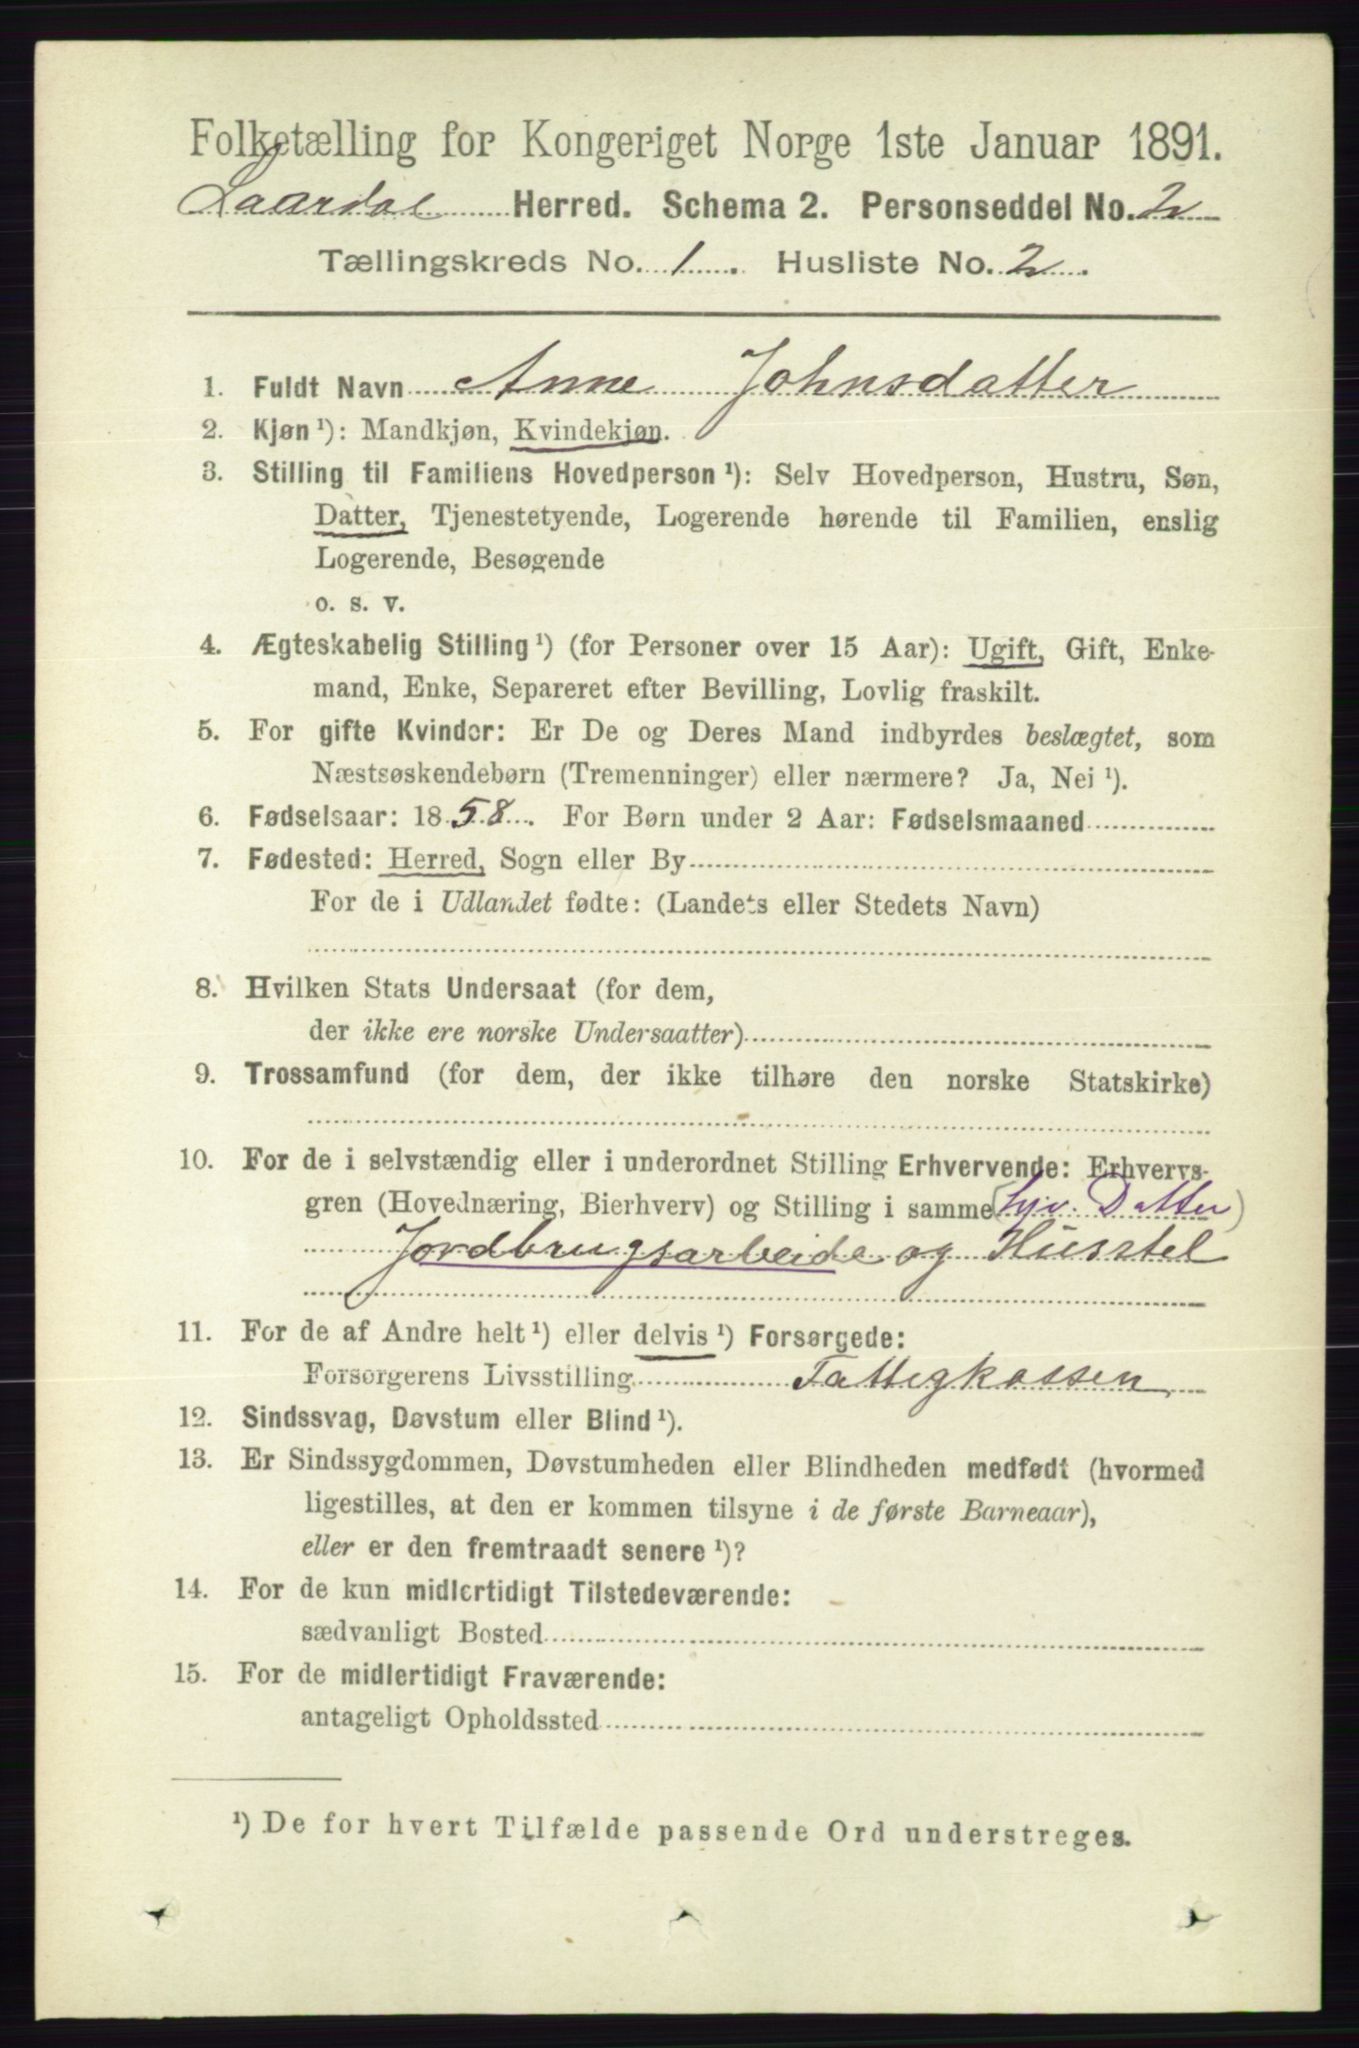 Folketælling for Kongeriget Norge 1ste Januar 1891.
Laardal Herred. Schema 2. Personseddel No. 2
Tællingskreds No. 1. Husliste No. 2.
1. Fuldt Navn Anne Johnsdatter
2. Kjøn ¹): Mandkjøn, Kvindekjøn.
3. Stilling til Familiens Hovedperson ¹): Selv Hovedperson, Hustru, Søn,
Datter, Tjenestetyende, Logerende hørende til Familien, enslig
Logerende, Besøgende
o. s. v.
4. Ægteskabelig Stilling ¹) (for Personer over 15 Aar): Ugift, Gift, Enke-
mand, Enke, Separeret efter Bevilling, Lovlig fraskilt.
5. For gifte Kvinder: Er De og Deres Mand indbyrdes beslægtet, som
Næstsøskendebørn (Tremenninger) eller nærmere? Ja, Nei ¹).
6. Fødselsaar: 1858. For Børn under 2 Aar: Fødselsmaaned
7. Fødested: Herred, Sogn eller By
For de i Udlandet fødte: (Landets eller Stedets Navn)
8. Hvilken Stats Undersaat (for dem,
der ikke ere norske Undersaatter)
9. Trossamfund (for dem, der ikke tilhøre den norske Statskirke)
10. For de i selvstændig eller i underordnet Stilling Erhvervende: Erhvervs-
gren (Hovednæring, Bierhverv) og Stilling i samme (hjv. Datter)
Jordbrugsarbeide og Husstel
11. For de af Andre helt ¹) eller delvis ¹) Forsørgede:
Forsørgerens Livsstilling Fattigkassen
12. Sindssvag, Døvstum eller Blind ¹).
13. Er Sindssygdommen, Døvstumheden eller Blindheden medfødt (hvormed
ligestilles, at den er kommen tilsyne i de første Barneaar),
eller er den fremtraadt senere ¹)?
14. For de kun midlertidigt Tilstedeværende:
sædvanligt Bosted
15. For de midlertidigt Fraværende:
antageligt Opholdssted
¹) De for hvert Tilfælde passende Ord understreges.